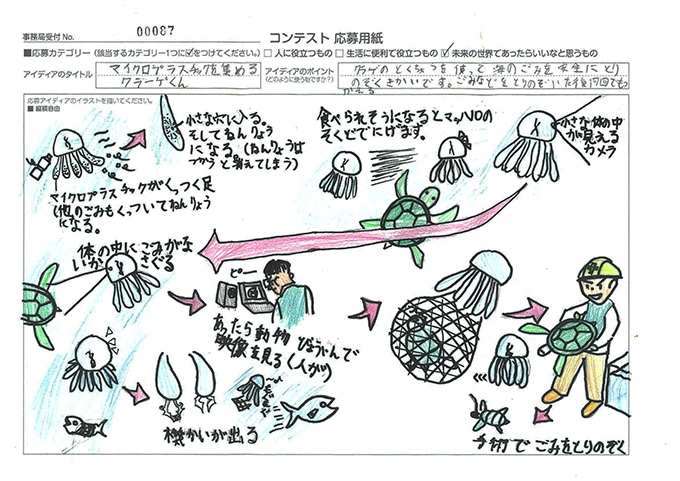 事務局受付 No. 00087
コンテスト 応募用紙
■応募カテゴリー（該当するカテゴリー1つに☑をつけてください。） □ 人に役立つもの □ 生活に便利で役立つもの ☑ 未来の世界であったらいいなと思うもの
アイディアのタイトル
マイクロプラスチックを集める
クラーゲくん
アイディアのポイント
（どのように使う物ですか？）
クラゲのとくちょうを使って海のごみを安全にとり
のぞくきかいです。ごみなどをとりのぞいた後何回でもつ
かえる
応募アイディアのイラストを描いてください。
■ 縦横自由
小さなあなに入る。
そしてねんりょう
になる（ねんりょうは
つかうと消えてしまう）
食べられそうになるとマッハ10の
そくどでにげます。
小さな体の中
が見える
カメラ
マイクロプラスチックがくっつく足
（他のごみもくっついてねんりょう
になる。
体の中にごみがな
いかさぐる
ピー
あったら動物びょういんで
映像を見る（人が）
機かいが出る
手術でごみをとりのぞく